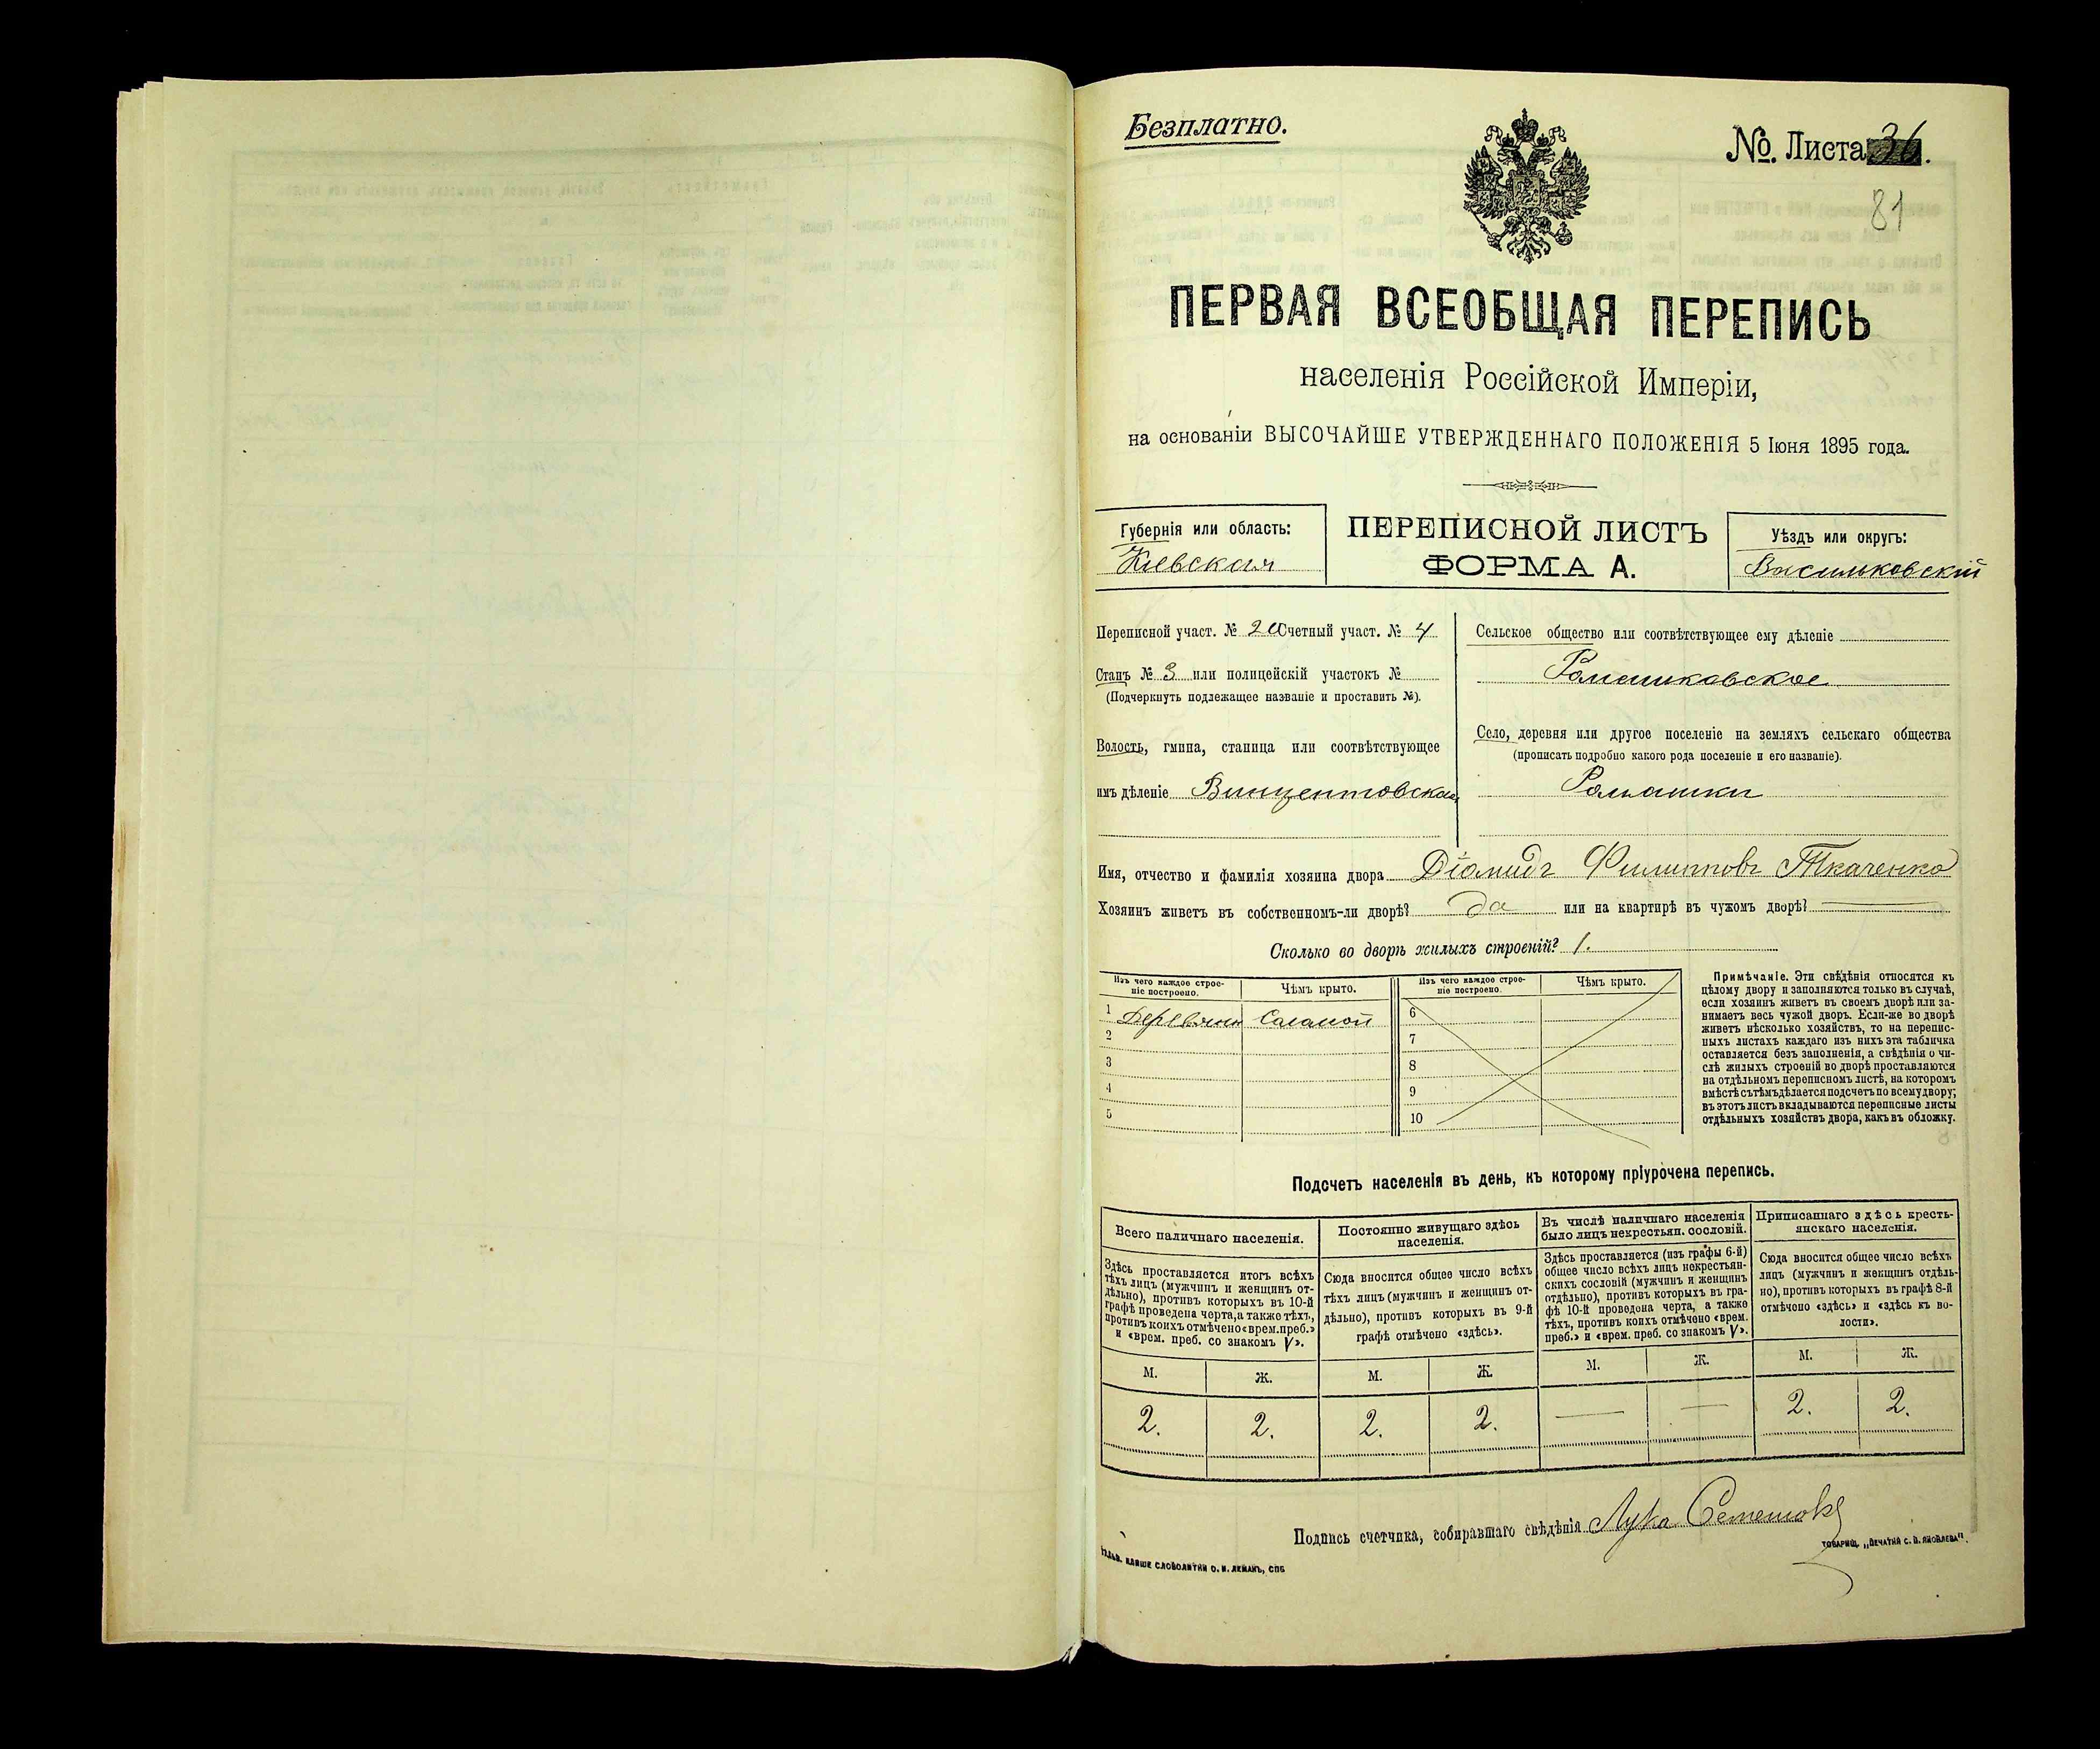 Безплатно.
№. Листа 36.
81
ПЕРВАЯ ВСЕОБЩАЯ ПЕРЕПИСЬ
населенія Россійской Имперіи,
на основаніи ВЫСОЧАЙШЕ УТВЕРЖДЕННАГО ПОЛОЖЕНІЯ 5 Іюня 1895 года.
Губернія или область:
Кіевская
ПЕРЕПИСНОЙ ЛИСТЪ
ФОРМА А.
Уѣздъ или округъ:
Васильковскій
Переписной участ. № 20 Счетный участ. № 4
Станъ № 3 или полицейскій участокъ №
(Подчеркнуть подлежащее названіе и проставить №).
Волость, гмина, станица или соотвѣтствующее
имъ дѣленіе Винцентовская
Сельское общество или соотвѣтствующее ему дѣленіе
Ромашковское
Село, деревня или другое поселеніе на земляхъ сельскаго общества
(прописать подробно какого рода поселеніе и его названіе).
Ромашки
Имя, отчество и фамилія хозяина двора Діомидъ Филиповъ Ткаченко
Хозяинъ живетъ въ собственномъ-ли дворѣ? да или на квартирѣ въ чужомъ дворѣ?
Сколько во дворѣ жилыхъ строеній? 1.
Изъ чего каждое строе-
ніе построено.
Чѣмъ крыто.
1 Деревянн Саламой
2
3
4
5
Изъ чего каждое строе-
ніе построено.
Чѣмъ крыто.
6
7
8
9
10
Примѣчаніе. Эти свѣдѣнія относятся къ
цѣлому двору и заполняются только въ случаѣ,
если хозяинъ живетъ въ своемъ дворѣ или за-
нимаетъ весь чужой дворъ. Если-же во дворѣ
живетъ нѣсколько хозяйствъ, то на перепис-
ныхъ листахъ каждаго изъ нихъ эта табличка
оставляется безъ заполненія, а свѣдѣнія о чи-
слѣ жилыхъ строеній во дворѣ проставляются
на отдѣльномъ переписномъ листѣ, на которомъ
вмѣстѣ съ тѣмъ дѣлается подсчетъ по всему двору;
въ этотъ листъ вкладываются переписные листы
отдѣльныхъ хозяйствъ двора, какъ въ обложку.
Подсчетъ населенія въ день, къ которому пріурочена перепись.
Всего наличнаго населенія.
Здѣсь проставляется итогъ всѣхъ
тѣхъ лицъ (мужчинъ и женщинъ от-
дѣльно), противъ которыхъ въ 10-й
графѣ проведена черта, а также тѣхъ,
противъ коихъ отмѣчено «врем. преб.»
и «врем. преб. со знакомъ V».
М. Ж.
2. 2.
Постоянно живущаго здѣсь
населенія.
Сюда вносится общее число всѣхъ
тѣхъ лицъ (мужчинъ и женщинъ от-
дѣльно), противъ которыхъ въ 9-й
графѣ отмѣчено «здѣсь».
М. Ж.
2. 2.
Въ числѣ наличнаго населенія
было лицъ некрестьян. сословій.
Здѣсь проставляется (изъ графы 6-й)
общее число всѣхъ лицъ некрестьян-
скихъ сословій (мужчинъ и женщинъ
отдѣльно), противъ которыхъ въ гра-
фѣ 10-й проведена черта, а также
тѣхъ, противъ коихъ отмѣчено «врем.
преб.» и «врем. преб. со знакомъ V».
М. Ж.
— —
Приписаннаго здѣсь кресть-
янскаго населенія.
Сюда вносится общее число всѣхъ
лицъ (мужчинъ и женщинъ отдѣль-
но), противъ которыхъ въ графѣ 8-й
отмѣчено «здѣсь» и «здѣсь къ во-
лости».
М. Ж.
2. 2.
Подпись счетчика, собиравшаго свѣдѣнія Лука
КЛИШЕ СЛОВОЛИТНИ О. И. ЛЕМАНЪ, СПБ
ТОВАРИЩ. „ПЕЧАТНЯ С. П. ЯКОВЛЕВА".